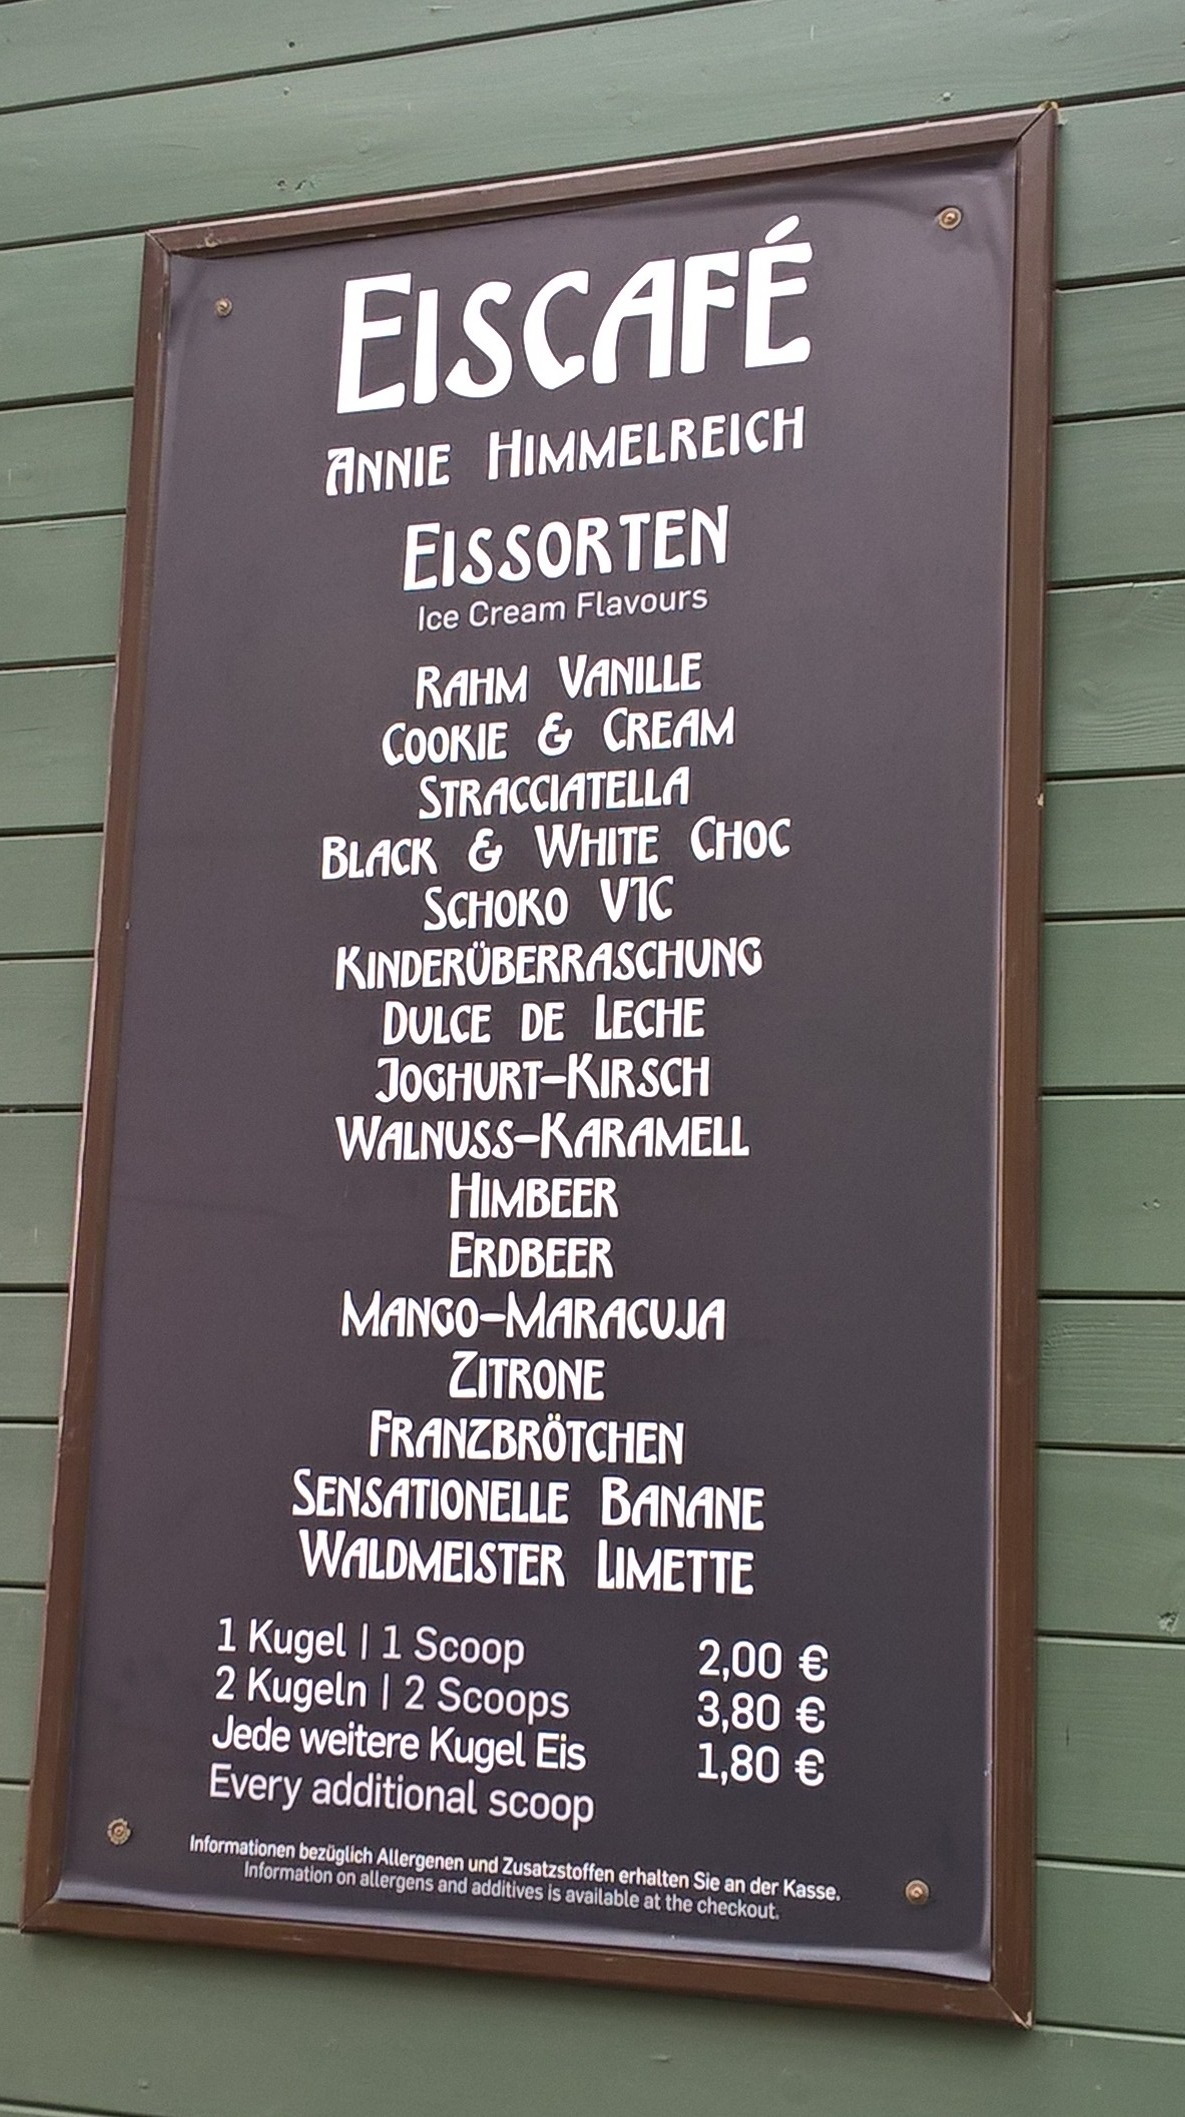 EISCAFÉ
ANNIE HIMMELREICH
EISSORTEN
Ice Cream Flavours
RAHM VANILLE
COOKIE & CREAM
STRACCIATELLA
BLACK & WHITE CHOC
SCHOKO VIC
KINDERÜBERRASCHUNG
DULCE DE LECHE
JOGHURT-KIRSCH
WALNUSS-KARAMELL
HIMBEER
ERDBEER
MANGO-MARACUJA
ZITRONE
FRANZBRÖTCHEN
SENSATIONELLE BANANE
WALDMEISTER LIMETTE
1 Kugel | 1 Scoop 2,00 €
2 Kugeln | 2 Scoops 3,80 €
Jede weitere Kugel Eis 1,80 €
Every additional scoop
Informationen bezüglich Allergenen und Zusatzstoffen erhalten Sie an der Kasse.
Information on allergens and additives is available at the checkout.